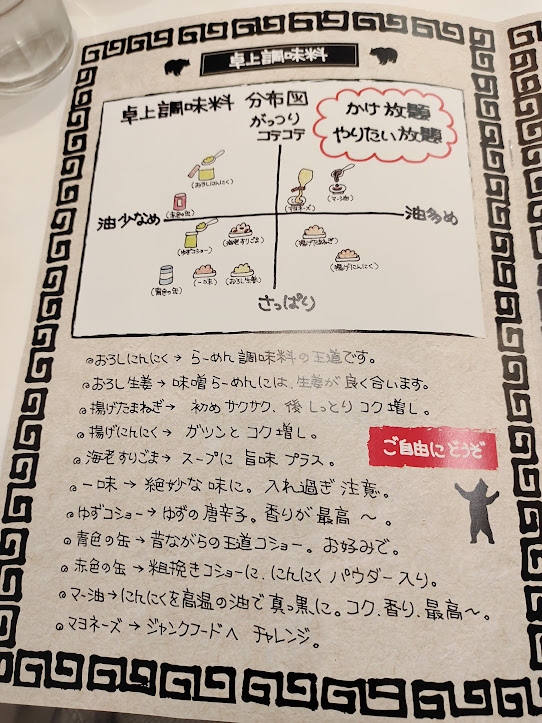 卓上調味料
卓上調味料 分布図
かけ放題
やりたい放題
がっつり
コテコテ
(おろしにんにく)
(マヨネーズ)
(マー油)
(赤色の缶)
油少なめ
油多め
(ゆずコショー)
(海老すりごま)
(揚げたまねぎ)
(青色の缶)
(一味)
(おろし生姜)
(揚げにんにく)
さっぱり
◎おろしにんにく→ らーめん調味料の王道です。
◎おろし生姜→ 味噌らーめんには、生姜が良く合います。
◎揚げたまねぎ→ 初めサクサク、後しっとりコク増し。
◎揚げにんにく→ ガツンとコク増し。
ご自由にどうぞ
◎海老すりごま→ スープに旨味プラス。
◎一味→絶妙な味に。入れ過ぎ注意。
◎ゆずコショー→ゆずの唐辛子。香りが最高〜。
◎青色の缶→昔ながらの王道コショー。お好みで。
◎赤色の缶→粗挽きコショーに、にんにくパウダー入り。
◎マー油→にんにくを高温の油で真っ黒に。コク、香り、最高〜。
◎マヨネーズ→ジャンクフードへ チャレンジ。